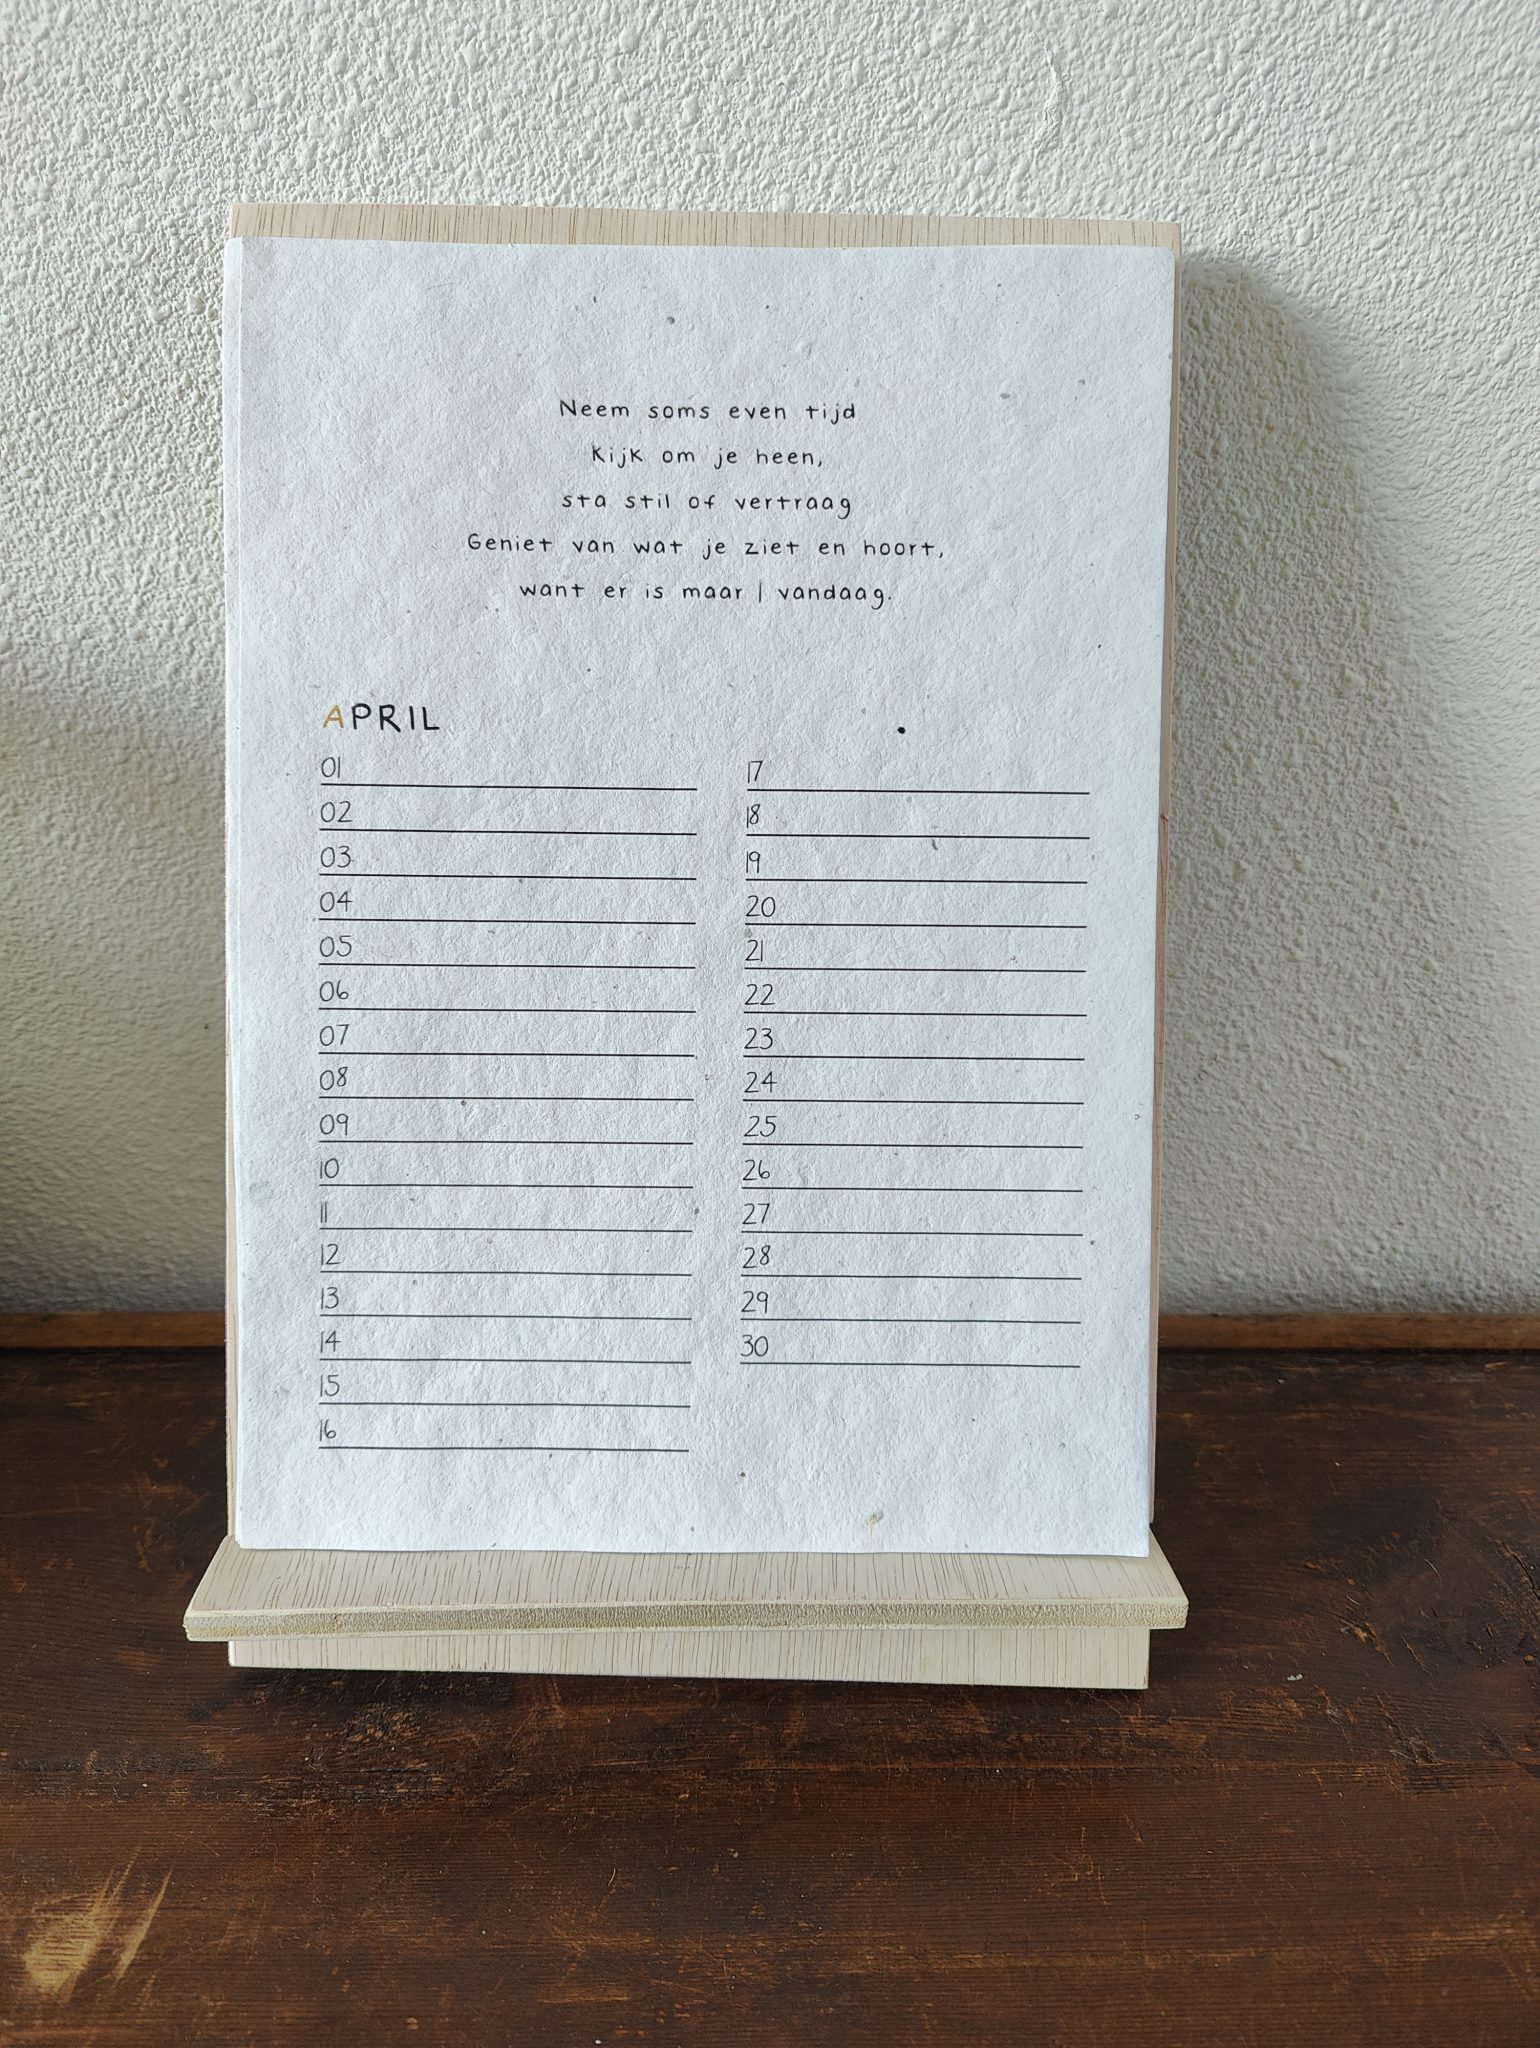 Neem soms even tijd
Kijk om je heen,
sta stil of vertraag
Geniet van wat je ziet en hoort,
want er is maar 1 vandaag.
APRIL
01
02
03
04
05
06
07
08
09
10
11
12
13
14
15
16
17
18
19
20
21
22
23
24
25
26
27
28
29
30